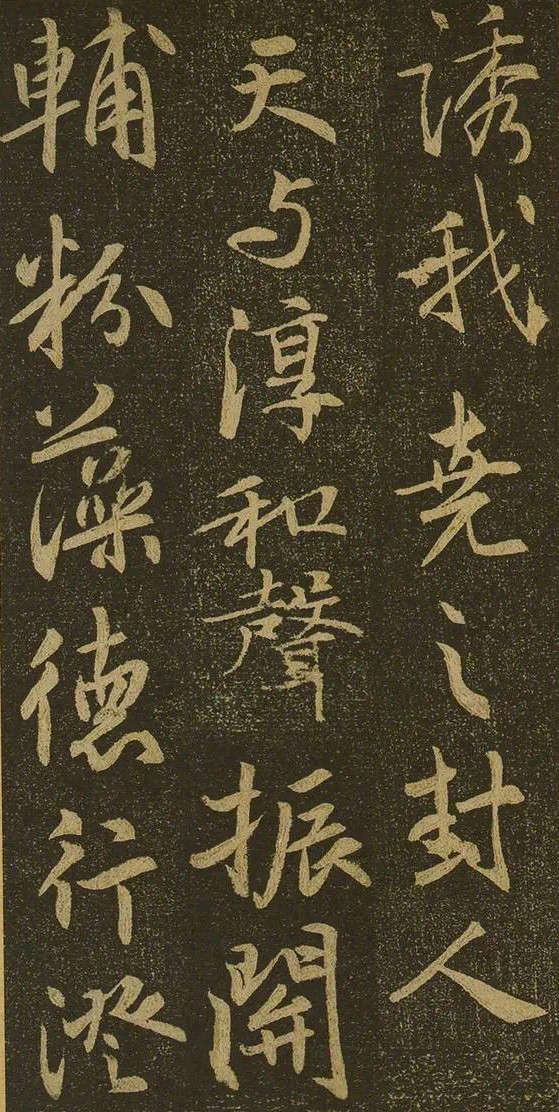 誘我堯之封人
天与淳和聲振開
輔粉藻德行澄